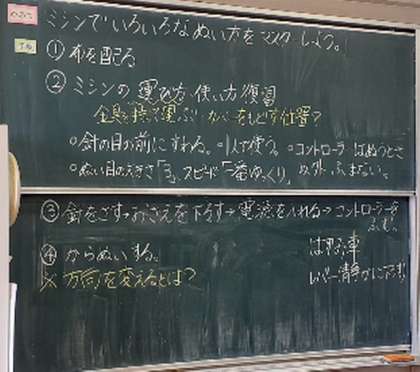 ミシンでいろいろなぬい方をマスターしよう。
① 布を配る
② ミシンの運び方、使い方復習
金具を持って運ぶ！ カバーをもどす位置？
○針の目の前にすわる。○1人で使う。○コントローラーはぬうとき
○ぬい目の大きさ「3」、スピード「一番ゆっくり」 以外ふまない。
③ 針をさす→おさえを下ろす→電源を入れる→コントローラーを
ふむ。
④ からぬいする。
はずみ車
※ 方向を変えるときは？
レバー 静かに下ろす